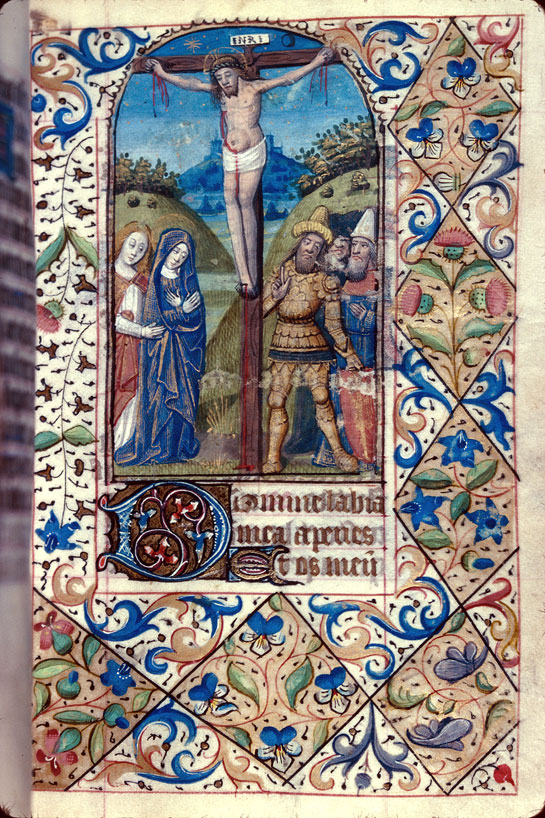 INRI
Domine labia
mea aperies
Et os meū